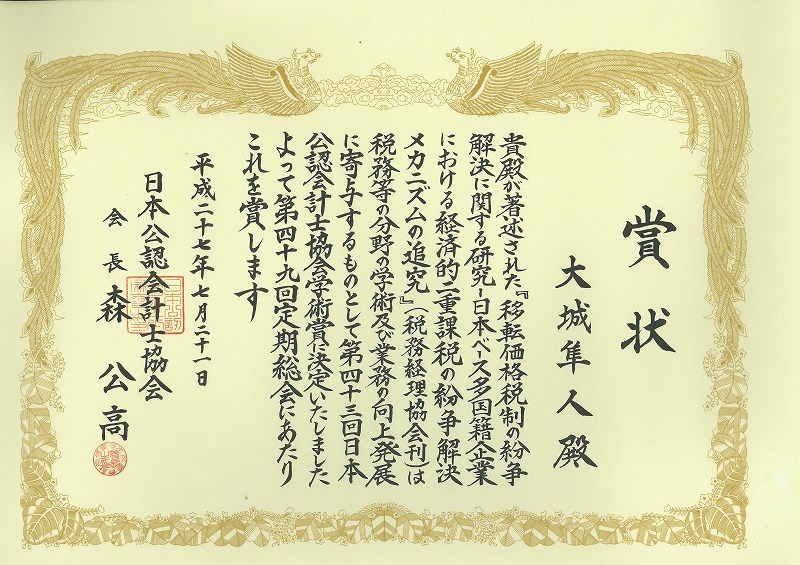 賞状
大城隼人殿
貴殿が著述された『移転価格税制の紛争
解決に関する研究ー日本ベース多国籍企業
における経済的二重課税の紛争解決
メカニズムの追究』(税務経理協会刊)は
税務等の分野の学術及び業務の向上発展
に寄与するものとして第四十三回日本
公認会計士協会学術賞に決定いたしました
よって第四十九回定期総会にあたり
これを賞します
平成二十七年七月二十一日
日本公認会計士協会
会長 森公高